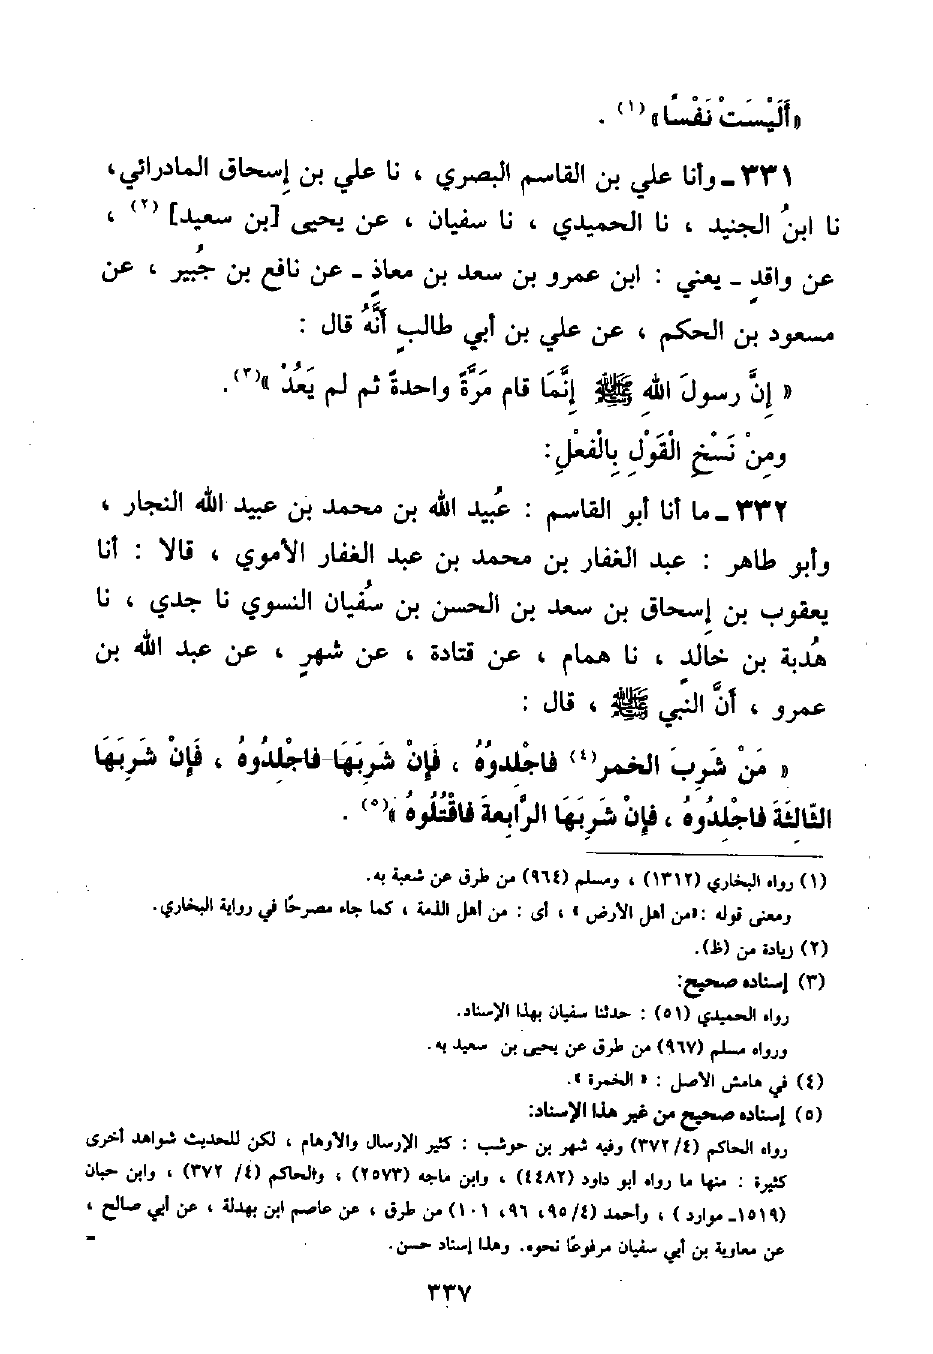 «أَلَيْسَتْ نَفْسًا»(١) .
٣٣١ ـ وأنا علي بن القاسم البصري ، نا علي بن إسحاق المادرائي،
نا ابنُ الجنيد ، نا الحميدي ، نا سفيان ، عن يحيى [بن سعيد](٢) ،
عن واقدٍ ـ يعني : ابن عمرو بن سعد بن معاذٍ ـ عن نافع بن جُبير ، عن
مسعود بن الحكم ، عن علي بن أبي طالبٍ أنَّهُ قال :
« إنَّ رسولَ اللهِ ﷺ إنَّمَا قام مَرَّةً واحدةً ثم لم يَعُدْ »(٣).
ومِنْ نَسْخِ الْقَوْلِ بِالْفعْلِ:
٣٣٢ ـ ما أنا أبو القاسم : عُبيد الله بن محمد بن عبيد الله النجار ،
وأبو طاهر : عبد الغفار بن محمد بن عبد الغفار الأموي ، قالا : أنا
يعقوب بن إسحاق بن سعد بن الحسن بن سفُيان النسوي نا جدي ، نا
هدُبة بن خالدٍ ، نا همام ، عن قتادة ، عن شهرٍ ، عن عبد الله بن
عمرو ، أنَّ النبي ﷺ ، قال :
« مَنْ شَرِبَ الخمر(٤) فاجْلدوُهُ ، فَإنْ شَرِبَهَا فاجْلِدُوهُ ، فَإنْ شَرِبَهَا
الثَّالِثَةَ فَاجْلِدُوهُ ، فإنْ شَرِبَهَا الرَّابِعةَ فَاقْتُلُوهُ »(٥) .
(١) رواه البخاري (١٣١٢) ، ومسلم (٩٦٤) من طرق عن شعبة به.
ومعنى قوله :«من أهل الأرض » ، أى : من أهل الذمة ، كما جاء مصرحًا في رواية البخاري.
(٢) زيادة من (ظ).
(٣) إسناده صحيح:
رواه الحميدي (٥١) : حدثنا سفيان بهذا الإسناد.
ورواه مسلم (٩٦٧) من طرق عن يحيى بن سعيد به.
(٤) في هامش الأصل : « الخمرة ».
(٥) إسناده صحيح من غير هذا الإسناد:
رواه الحاكم (٤/ ٣٧٢) وفيه شهر بن حوشب : كثير الإرسال والأوهام ، لكن للحديث شواهد أخرى
كثيرة : منها ما رواه أبو داود (٤٤٨٢) ، وابن ماجه (٢٥٧٣) ، والحاكم (٤/ ٣٧٢) ، وابن حبان
(١٥١٩ـ موارد ) ، وأحمد (٤/ ٩٥، ٩٦، ١٠١) من طرق ، عن عاصم ابن بهدلة ، عن أبي صالح ،
عن معاوية بن أبي سفيان مرفوعًا نحوه. وهذا إسناد حسن. =
٣٣٧